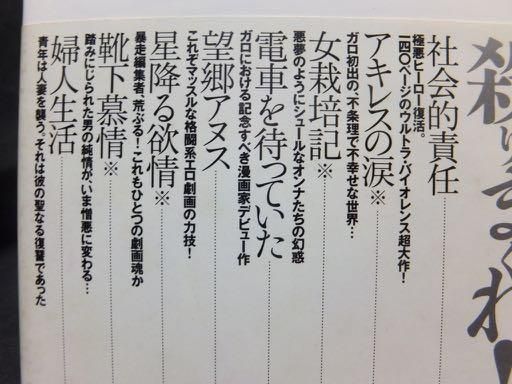 殺
社会的責任
極悪ヒーロー復活。
一四〇ページのウルトラ・バイオレンス超大作!
アキレスの涙※
ガロ初出の、不条理で不幸せな世界…
女栽培記※
悪夢のようにシュールなオンナたちの幻惑
電車を待っていた
ガロにおける記念すべき漫画家デビュー作
望郷アヌス
これぞマッスルな格闘系エロ劇画の力技!
星降る欲情※
暴走編集者、荒ぶる!これもひとつの劇画魂か
靴下慕情※
踏みにじられた男の純情が、いま憎悪に変わる…
婦人生活
青年は人妻を襲う。それは彼の聖なる復讐であった